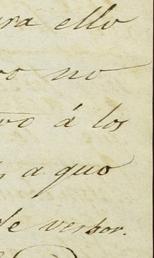 ra ello
no
á los
a quo
de verbor.